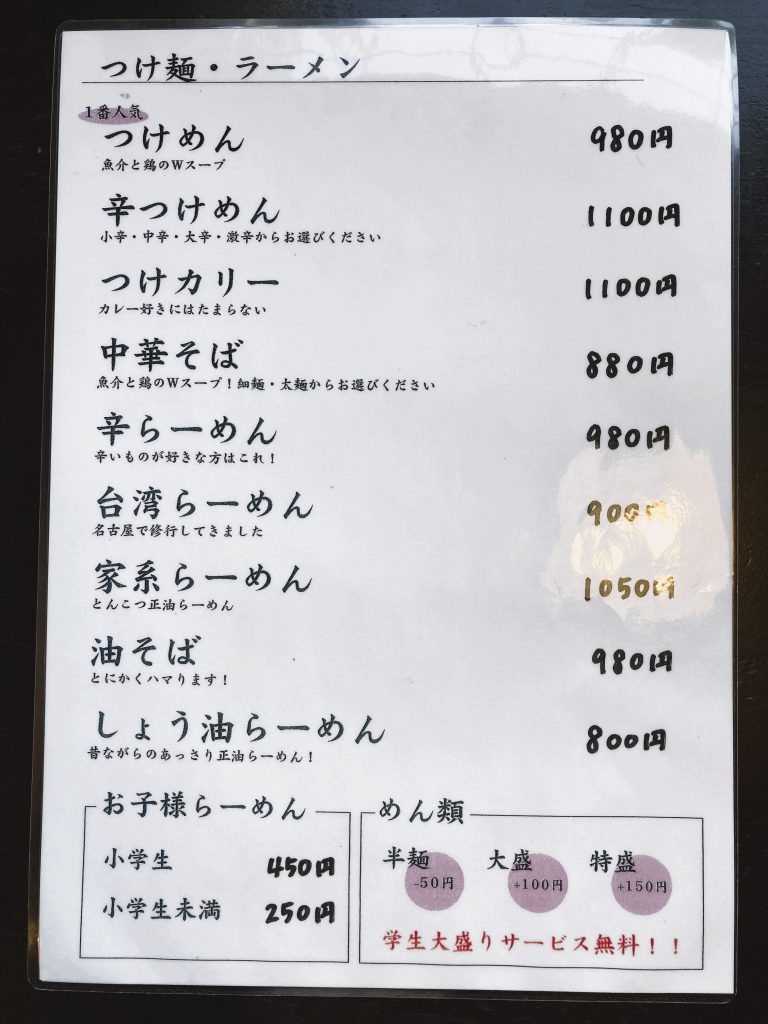 つけ麺・ラーメン
1番人気
つけめん 980円
魚介と鶏のWスープ
辛つけめん 1100円
小辛・中辛・大辛・激辛からお選びください
つけカリー 1100円
カレー好きにはたまらない
中華そば 880円
魚介と鶏のWスープ！細麺・太麺からお選びください
辛らーめん 980円
辛いものが好きな方はこれ！
台湾らーめん 900円
名古屋で修行してきました
家系らーめん 1050円
とんこつ正油らーめん
油そば 980円
とにかくハマります！
しょう油らーめん 800円
昔ながらのあっさり正油らーめん！
お子様らーめん
小学生 450円
小学生未満 250円
めん類
半麺 大盛 特盛
-50円 +100円 +150円
学生大盛りサービス無料！！